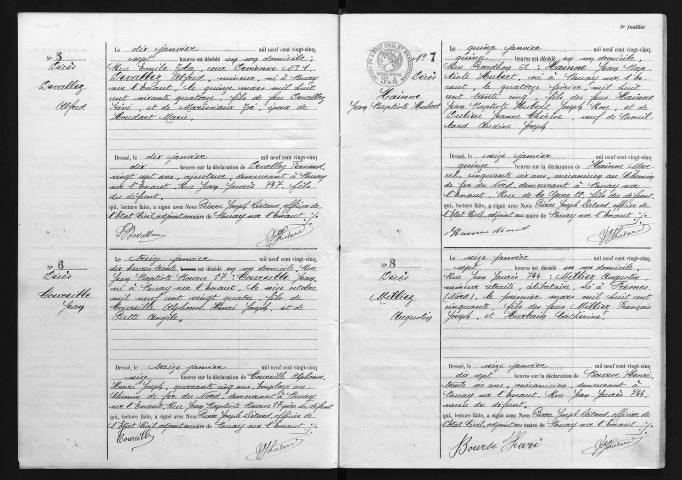 3e feuillet
N° 5
Décès
Devallez
Alfred
Le dix janvier mil neuf cent vingt-cinq,
sept heures est décédé en son domicile,
Rue Emile Zola, cour Devienne N° 1,
Devallez Alfred, mineur, né à
sur l'Escaut, le quinze mars mil huit
cent soixante quatorze, fils de feu Devallez
et de époux de
Houdart Marie.
Dressé, le dix janvier mil neuf cent vingt-cinq
dix heures sur la déclaration de Devallez Fernand,
vingt sept ans, ajusteur, demeurant à
sur l'Escaut, Rue Jean Jaurès fils
du défunt,
qui, lecture faite, a signé avec Nous Pierre Joseph officier de
l'Etat Civil, adjoint au maire de sur l'Escaut ./.
Devallez
N° 6
Décès
Courcille
Jean
Le treize janvier mil neuf cent vingt-cinq,
dix heures trente est décédé en son domicile, Rue
Jean Baptiste 87, Courcille Jean,
né à sur l'Escaut, le seize octobre
mil neuf cent vingt quatre, fils de
Courcille Alphonse Henri Joseph, et de
Angèle.
Dressé, le treize janvier mil neuf cent vingt-cinq
seize heures sur la déclaration de Courcille Alphonse
Henri Joseph, quarante cinq ans, Employé au
Chemin de fer du Nord, demeurant à
sur l'Escaut, Rue Jean Baptiste père du défunt
qui, lecture faite, a signé avec Nous Pierre Joseph officier de
l'Etat Civil, adjoint au maire de sur l'Escaut ./.
N° 7
Décès
Hainne
Jean Baptiste Hubert
Le quinze janvier mil neuf cent vingt-cinq,
quinze heures est décédé en son domicile,
Rue Proudhon Hainne Jean Bap
tiste Hubert, né à sur l'Es
caut, le quatorze février, mil huit
cent trente cinq, fils des feus Hainne
Jean Baptiste Hubert Joseph et de
Jeanne Thérèse, veuf de
Joseph
Dressé, le seize janvier mil neuf cent vingt-cinq
quinze heures sur la déclaration de Hainne Mar
cel, cinquante six ans, mécanicien au Chemin
de fer du Nord, demeurant à sur
l'Escaut, Rue de la Gare fils du défunt,
qui, lecture faite, a signé avec Nous Pierre Joseph officier de
l'Etat Civil, adjoint au maire de sur l'Escaut ./.
N° 8
Décès
Milliez
Augustin
Le seize janvier mil neuf cent vingt-cinq,
sept heures est décédé en son domicile,
Rue Jean Jaurès 244, Milliez Augustin,
mineur retraité, célibataire, né à Fresnes
(Nord), le premier mars mil huit cent
cinquante, fils des feus Milliez François
Joseph, et Hurbain Catherine.
Dressé, le seize janvier mil neuf cent vingt-cinq
dix sept heures sur la déclaration de Bourse Henri,
trente six ans, mécanicien, demeurant à
sur l'Escaut, Rue Jean Jaurès 244,
neveu du défunt,
qui, lecture faite, a signé avec Nous Pierre Joseph officier de
l'Etat Civil, adjoint au maire de sur l'Escaut ./.
Bourse Henri